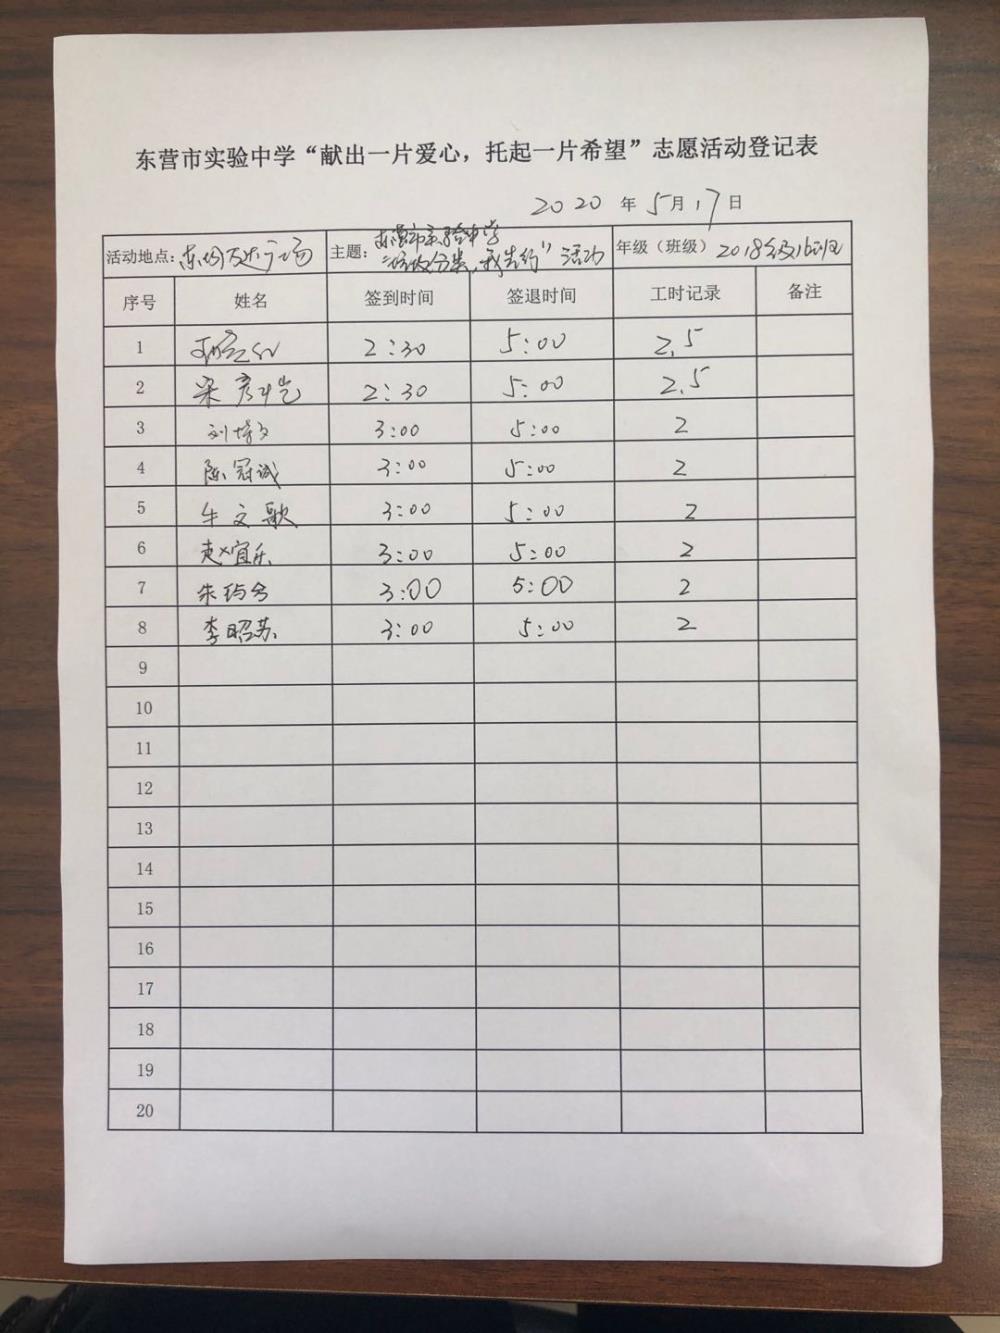 东营市实验中学“献出一片爱心，托起一片希望”志愿活动登记表
2020 年 5月17日
活动地点: 东 广场 主题: 东营市实验中学 “垃圾分类，我先行”活动 年级（班级） 2018级16班
序号 姓名 签到时间 签退时间 工时记录 备注
1 2:30 5:00 2.5
2 梁彦 2:30 5:00 2.5
3 刘 文 3:00 5:00 2
4 陈冠诚 3:00 5:00 2
5 牛文歌 3:00 5:00 2
6 赵宜乐 3:00 5:00 2
7 朱 3:00 5:00 2
8 李昭苏 3:00 5:00 2
9
10
11
12
13
14
15
16
17
18
19
20